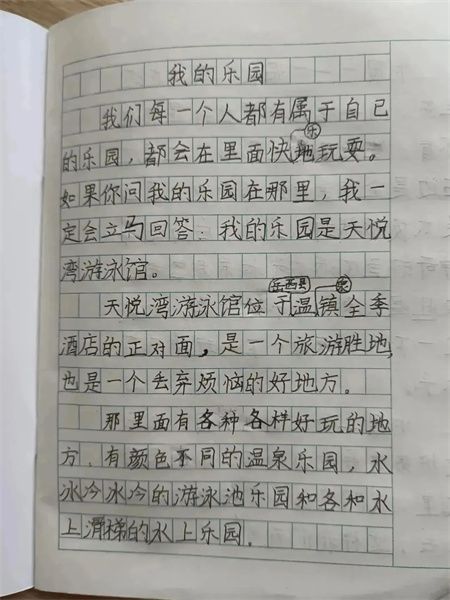 我的乐园
我们每一个人都有属于自己
的乐园，都会在里面快乐地玩耍。
如果你问我的乐园在那里，我一
定会立马回答：我的乐园是天悦
湾游泳馆。
天悦湾游泳馆位于岳西县温泉镇全季
酒店的正对面，是一个旅游胜地，
也是一个丢弃烦恼的好地方。
那里面有各种各样好玩的地
方，有颜色不同的温泉乐园，水
冰冷冰冷的游泳池乐园和各和水
上滑梯的水上乐园．